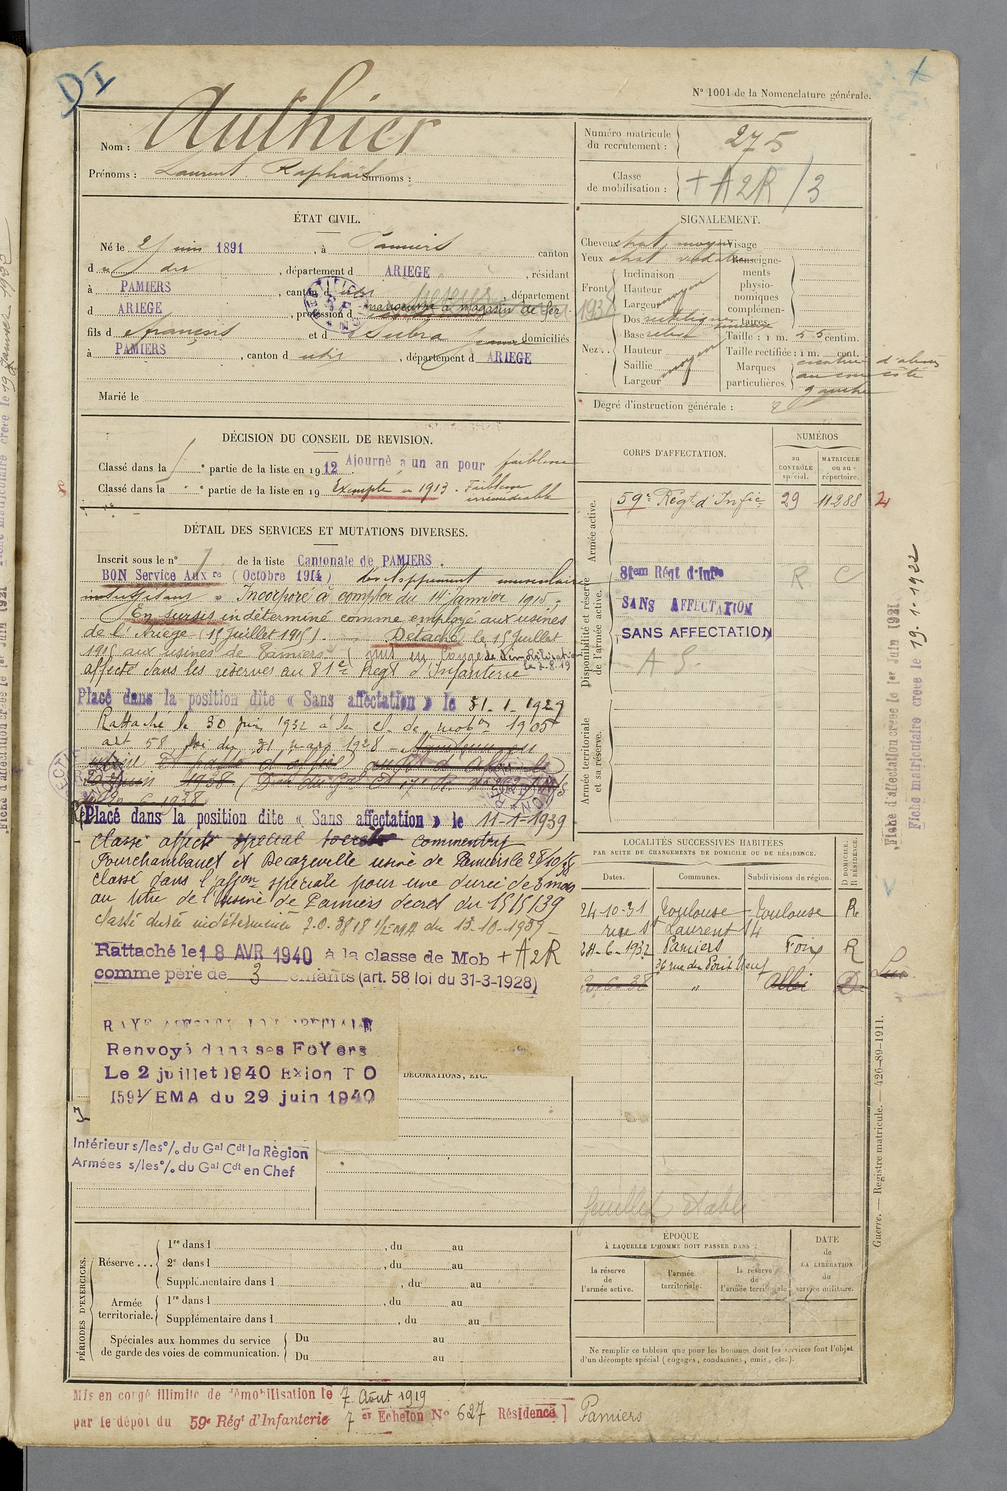 D I
N° 1001 de la Nomenclature générale.
Nom : Authier
Prénoms : Laurent Raphaël Surnoms :
Numéro matricule du recrutement : 275
Classe de mobilisation : + A2R / 3
ÉTAT CIVIL.
Né le 2 juin 1891, à Pamiers canton
d u dit, département d ARIEGE, résidant
à PAMIERS, canton d udit, département
d ARIEGE, profession d manoeuvre magasin de fer
fils d e françois et d Subra domiciliés
à PAMIERS, canton d udit, département d ARIEGE
Marié le
SIGNALEMENT.
Cheveux chat. moyen Visage
Yeux chat.
Renseignements physionomiques complémentaires
Front
Inclinaison
Hauteur moyen
Largeur
Nez
Dos rectiligne
Base relevé
Hauteur
Saillie moyen
Largeur
Taille : 1 m. 55 centim.
Taille rectifiée : 1 m. cent.
Marques particulières
cicatrice d'abcès
au cou côté
gauche
Degré d'instruction générale :
DÉCISION DU CONSEIL DE REVISION.
Classé dans la ° partie de la liste en 1912 Ajourné a un an pour faiblesse
Classé dans la ° partie de la liste en 19 Exempté en 1913. Faiblesse
irrémédiable
DÉTAIL DES SERVICES ET MUTATIONS DIVERSES.
Inscrit sous le n° de la liste Cantonale de PAMIERS.
BON Service Aux re (Octobre 1914) développement musculaire
insuffisant. Incorporé à compter du 14 janvier 1915;
En sursis indéterminé comme employé aux usines
de l'Ariège (15 juillet 1915). Détaché le 15 juillet
1915 aux usines de Pamiers (mis en congé de démobilisation
le 7.8.19
affecté dans les réserves au 81e Régt d'Infanterie
Placé dans la position dite « Sans affectation » le 31-1-1929
Rattaché le 30 juin 1932 à la cl. de mobon 1905
art 58 loi du 31 mars 1928
1938
Placé dans la position dite « Sans affectation » le 11-1-1939
Classé affecté spécial société commentry
Fourchambault et Decazeville usine de Pamiers le 28/10/38
classé dans l'affon spéciale pour une durée de 3 mois
au titre de l'usine de Pamiers décret du 15/5/39
classé durée indéterminée I.O. 3818 1/EMA du 13-10-1939
Rattaché le 18 AVR 1940 à la classe de Mob + A2R
comme père de 3 enfants (art. 58 loi du 31-3-1928)
RAYE AFFECTATION SPECIALE
Renvoyé dans ses FoYers
Le 2 juillet 1940 Exion T O
1591/EMA du 29 juin 1940
DÉCORATIONS, ETC.
Intérieur s/les°/. du Gal Cdt la Région
Armées s/les°/. du Gal Cdt en Chef
CORPS D'AFFECTATION.
NUMÉROS
au contrôle spécial.
matricule ou au répertoire.
Armée active.
59e Régt d'Infie 29 11288
Disponibilité et réserve de l'armée active.
81em Régt d'Infie
SANS AFFECTATION
SANS AFFECTATION
A S.
Armée territoriale et sa réserve.
LOCALITÉS SUCCESSIVES HABITÉES
PAR SUITE DE CHANGEMENTS DE DOMICILE OU DE RÉSIDENCE.
Dates. Communes. Subdivisions de région. D DOMICILE. R RÉSIDENCE.
24-10-31 Toulouse Toulouse R
rue St Laurent 14
28-6-1932 Pamiers Foix R
36 rue du Pont Neuf
" Albi D
feuillet établi
PÉRIODES D'EXERCICES.
Réserve ...
1re dans l , du au
2e dans l , du au
Supplémentaire dans l , du au
Armée territoriale.
1re dans l , du au
Supplémentaire dans l , du au
Spéciales aux hommes du service de garde des voies de communication.
Du au
Du au
ÉPOQUE
À LAQUELLE L'HOMME DOIT PASSER DANS :
la réserve de l'armée active.
l'armée territoriale.
la réserve de l'armée territoriale
DATE de LA LIBÉRATION du service militaire.
Ne remplir ce tableau que pour les hommes dont les services font l'objet
d'un décompte spécial (engagés, condamnés, omis, etc.).
Mis en congé illimité de démobilisation le 7 Août 1919
par le dépôt du 59e Régt d'Infanterie 7 er Echelon No 627 Résidence Pamiers
Fiche d'affectation créée le 1er Juin 1921
Fiche matriculaire créée le 19.1.1922
Guerre. — Registre matricule. — 426-89-1911.